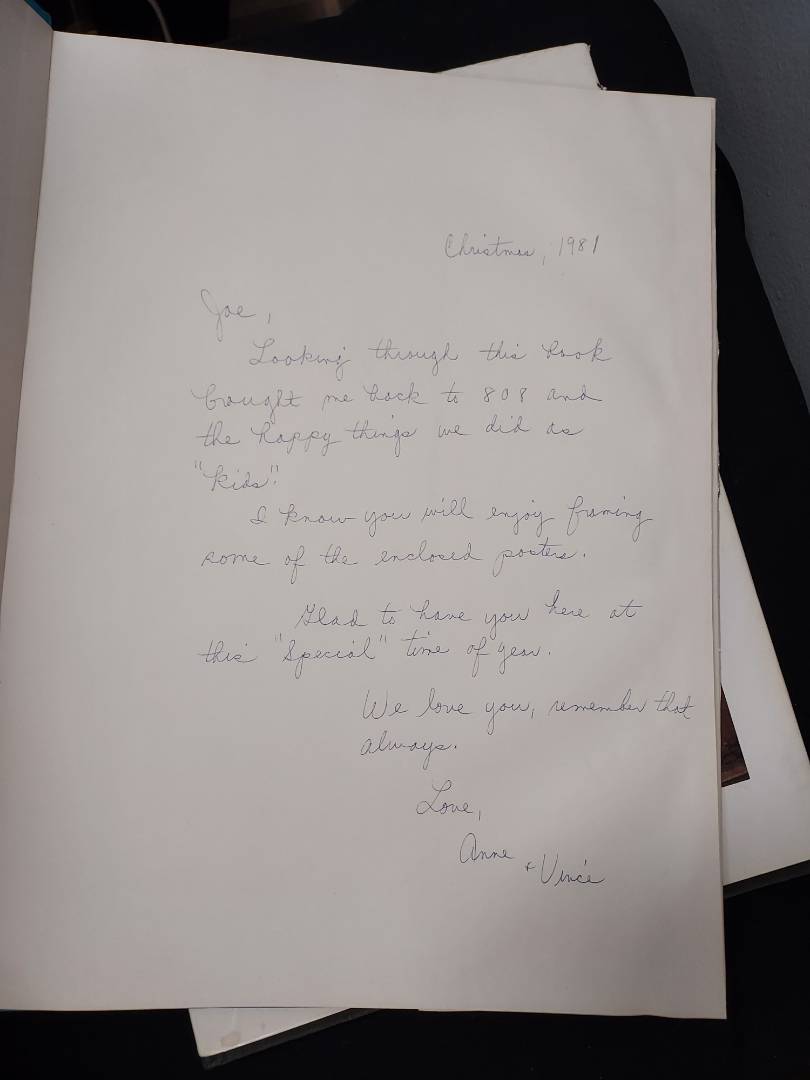 Christmas, 1981
Joe,
Looking through this book
bought me back to 808 and
the happy things we did as
"kids".
I know you will enjoy framing
some of the enclosed posters.
Glad to have you here at
this "Special" time of year.
We love you, remember that
always.
Love,
Anne + Vince